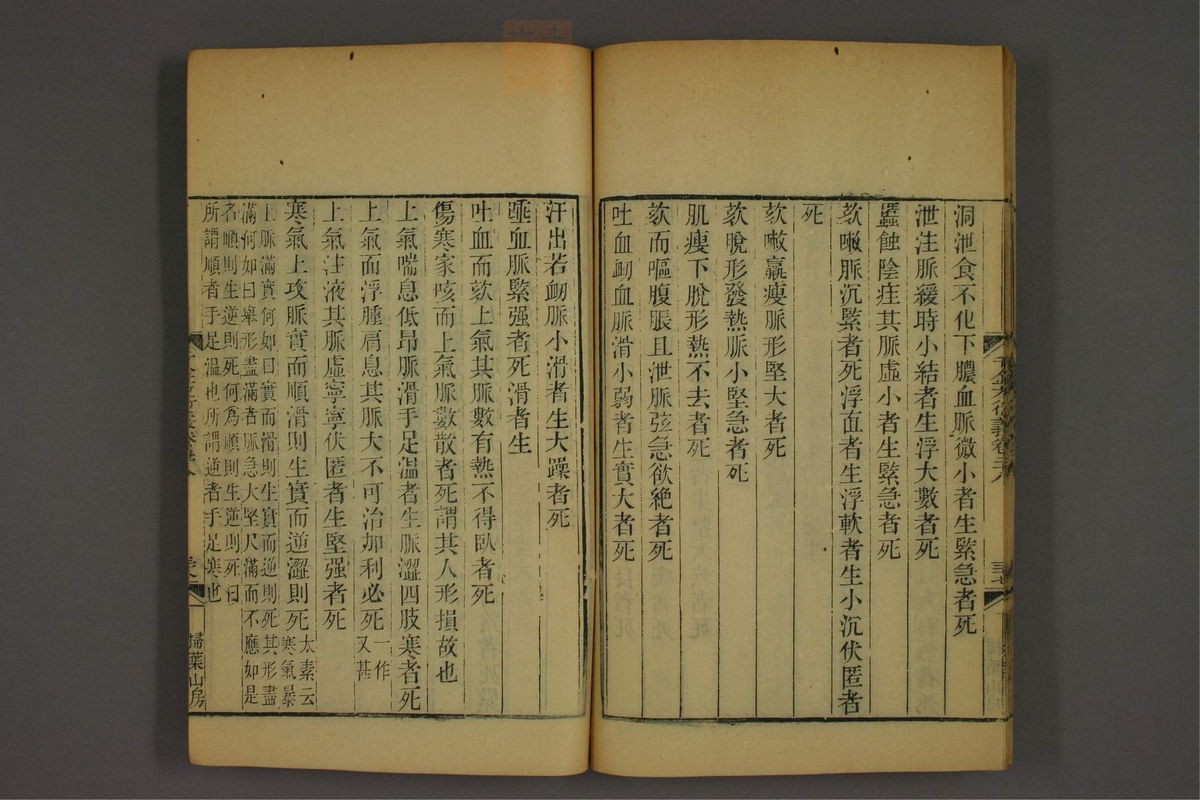 洞泄食不化下膿血脈微小者生緊急者死
泄注脈緩時小結者生浮大數者死
䘌蝕陰疰其脈虛小者生緊急者死
欬嗽脈沉緊者死浮直者生浮軟者生小沉伏匿者
死
欬嗽羸瘦脈形堅大者死
欬脫形發熱脈小堅急者死
肌瘦下脫形熱不去者死
欬而嘔腹脹且泄脈弦急欲絕者死
吐血衂血脈滑小弱者生實大者死
汗出若衂脈小滑者生大躁者死
唾血脈緊强者死滑者生
吐血而欬上氣其脈數有熱不得臥者死
傷寒家咳而上氣脈數散者死謂其人形損故也
上氣喘息低昂脈滑手足溫者生脈澀四肢寒者死
上氣面浮腫肩息其脈大不可治加利必死一作又甚
上氣注液其脈虛寧寧伏匿者生堅强者死
寒氣上攻脈實而順滑則生實而逆澀則死太素云寒氣暴
上脈滿實何如曰實而滑則生實而逆則死其形盡
滿何如曰舉形盡滿者脈急大堅尺滿而不應如是
者順則生逆則死何爲順則生逆則死曰
所謂順者手足溫也所謂逆者手足寒也
掃葉山房